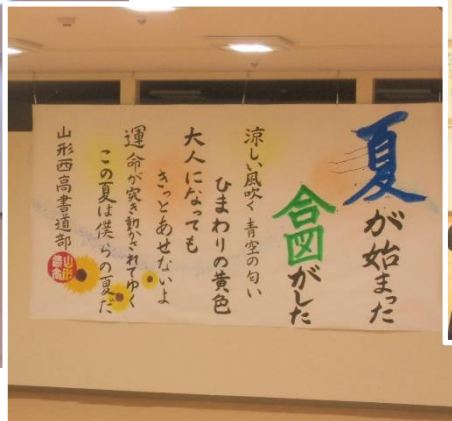 夏が始まった
合図がした
涼しい風吹く青空の匂い
ひまわりの黄色
大人になっても
きっとあせないよ
運命が突き動かされてゆく
この夏は僕らの夏だ
山形西高書道部